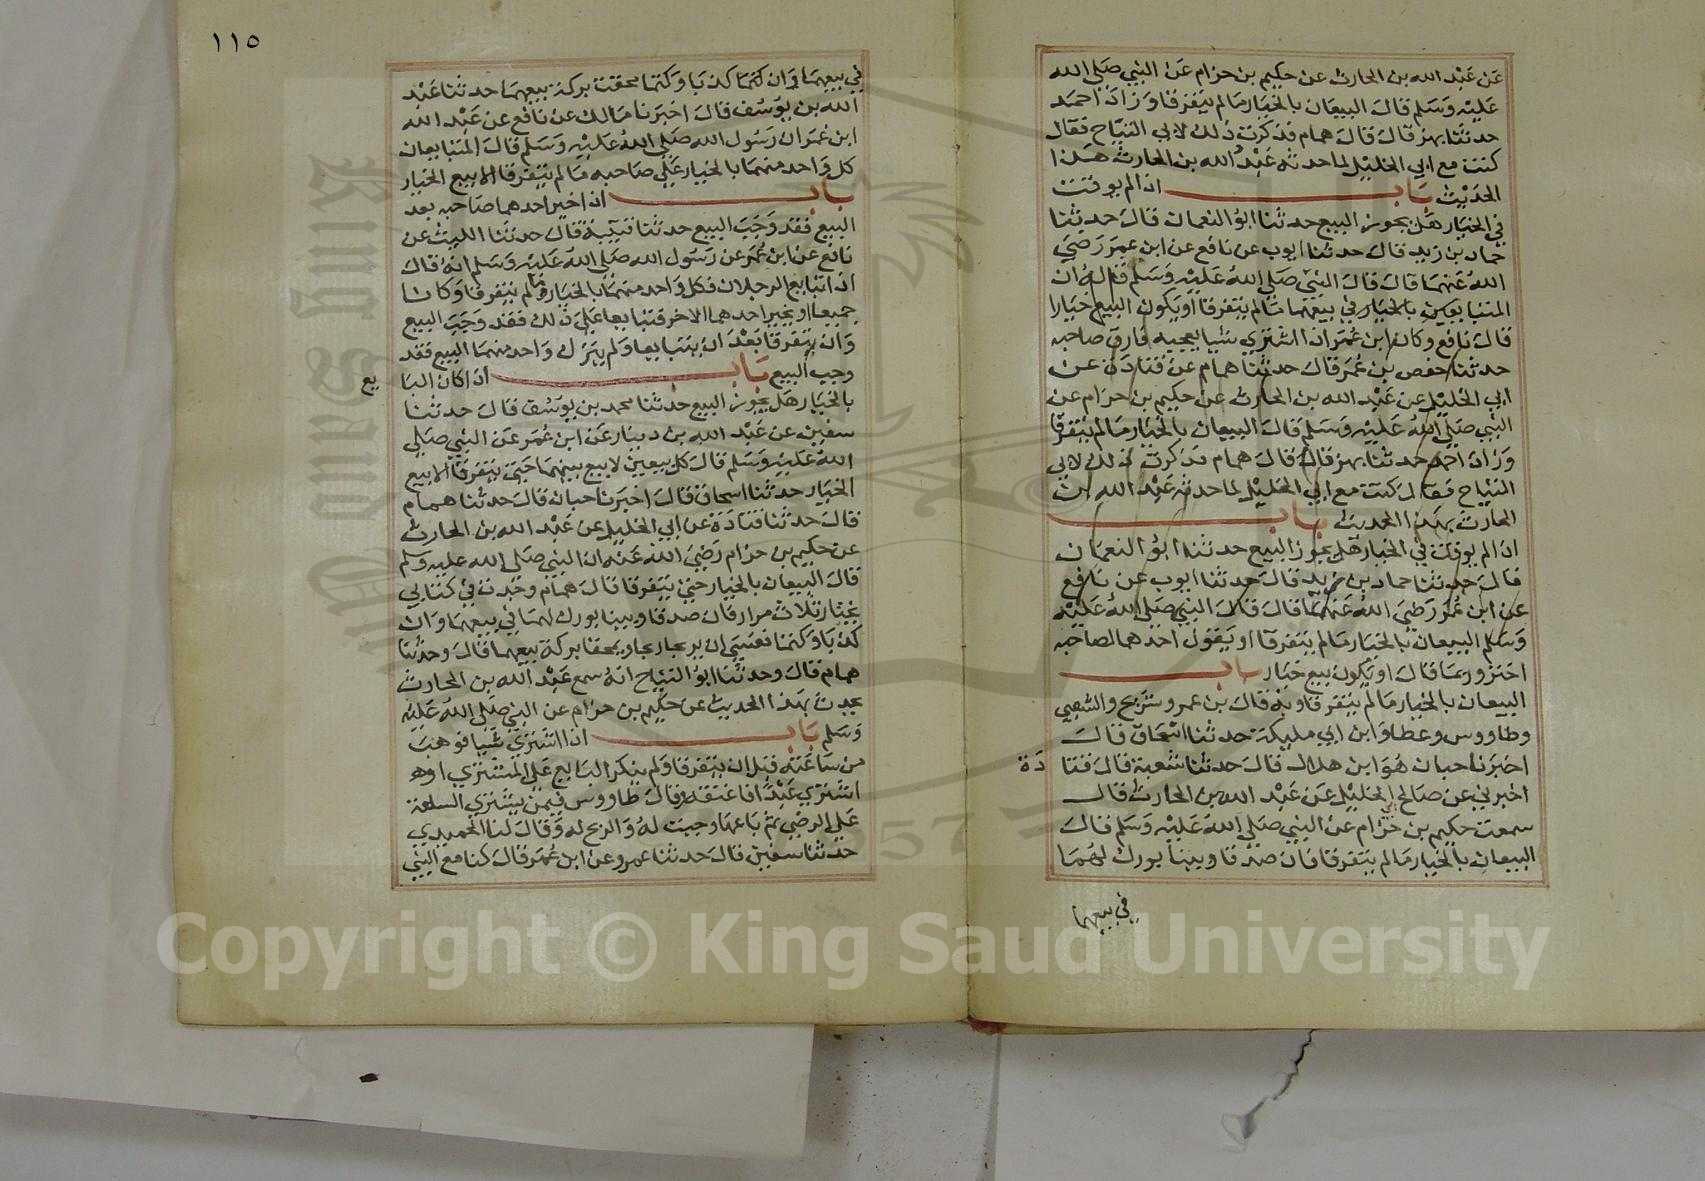 عن عبد الله بن الحارث عن حكيم بن حزام عن النبي صلى الله
عليه وسلم قال البيعان بالخيار مالم يتفرقا وزاد احمد
حدثنا بهز قال قال همام فذكرت ذلك لابي التياح فقال
كنت مع ابي الخليل لما حدثه عبد الله بن الحارث هذا
الحديث باب اذا لم يوقت
في الخيار هل يجوز البيع حدثنا ابو النعمان قال حدثنا
حماد بن زيد قال حدثنا ايوب عن نافع عن ابن عمر رضي
الله عنهما قال قال النبي صلى الله عليه وسلم قال ان
المتبايعين بالخيار في بيعهما مالم يتفرقا او يكون البيع خيارا
قال نافع وكان ابن عمر اذا اشترى شيا يعجبه فارق صاحبه
حدثنا حفص بن عمر قال حدثنا همام عن قتادة عن
ابي الخليل عن عبد الله بن الحارث عن حكيم بن حزام عن
النبي صلى الله عليه وسلم قال البيعان بالخيار مالم يتفرقا
وزاد احمد حدثنا بهز قال قال همام فذكرت ذلك لابي
التياح فقال كنت مع ابي الخليل لما حدثه عبد الله بن
الحارث بهذا الحديث باب
اذا لم يوقت في الخيار هل يجوز البيع حدثنا ابو النعمان
قال حدثنا حماد بن زيد قال حدثنا ايوب عن نافع
عن ابن عمر رضي الله عنهما قال قال النبي صلى الله عليه
وسلم البيعان بالخيار مالم يتفرقا او يقول احدهما لصاحبه
اختر وربما قال او يكون بيع خيار باب
البيعان بالخيار مالم يتفرقا وبه قال بن عمر وشريح والشعبي
وطاووس وعطا وابن ابي مليكة حدثنا اسحاق قال
اخبرنا حبان هو ابن هلال قال حدثنا شعبة قال قتا دة
اخبرني عن صالح ابي الخليل عن عبد الله بن الحارث قال
سمعت حكيم بن حزام عن النبي صلى الله عليه وسلم قال
البيعان بالخيار مالم يتفرقا فان صدقا وبينا بورك لهما
في بيعهما
١١٥
في بيعهما وان كتما كذبا وكتما محقت بركة بيعهما حدثنا عبد
الله بن يوسف قال اخبرنا مالك عن نافع عن عبد الله
ابن عمر ان رسول الله صلى الله عليه وسلم قال المتبايعان
كل واحد منهما بالخيار على صاحبه مالم يتفرقا الا بيع الخيار
باب اذا خير احدهما صاحبه بعد
البيع فقد وجب البيع حدثنا قتيبة قال حدثنا الليث عن
نافع عن ابن عمر عن رسول الله صلى الله عليه وسلم انه قال
اذا تبايع الرجلان فكل واحد منهما بالخيار مالم يتفرقا وكانا
جميعا او يخير احدهما الاخر فتبايعا على ذلك فقد وجب البيع
وان يتفرقا بعد ان يتبايعا ولم يترك واحد منهما البيع فقد
وجب البيع باب اذا كان البا يع
بالخيار هل يجوز البيع حدثنا محمد بن يوسف قال حدثنا
سفين عن عبد الله بن دينار عن ابن عمر عن النبي صلى
الله عليه وسلم قال كل بيعين لا بيع بينهما حتى يتفرقا الا بيع
الخيار حدثنا اسحاق قال اخبرنا حبان قال حدثنا همام
قال حدثنا قتادة عن ابي الخليل عن عبد الله بن الحارث
عن حكيم بن حزام رضي الله عنه ان النبي صلى الله عليه وسلم
قال البيعان بالخيار حتى يتفرقا قال همام وجدت في كتابي
يختار ثلاث مرار فان صدقا وبينا بورك لهما في بيعهما وان
كذبا وكتما فعسى ان يربحا ربحا ويمحقا بركة بيعهما قال وحدثنا
همام قال وحدثنا ابو التياح انه سمع عبد الله بن الحارث
يحدث بهذا الحديث عن حكيم بن حزام عن النبي صلى الله عليه
وسلم باب اذا اشترى شيا فوهب
من ساعته قبل ان يتفرقا ولم ينكر البايع على المشتري او
اشترى عبدا فاعتقه وقال طاووس فيمن يشتري السلعة
على الرضى ثم باعها وجبت له والربح له وقال لنا الحميدي
حدثنا سفين قال حدثنا عمرو عن ابن عمر قال كنا مع النبي
King Saud University
1957
Copyright © King Saud University